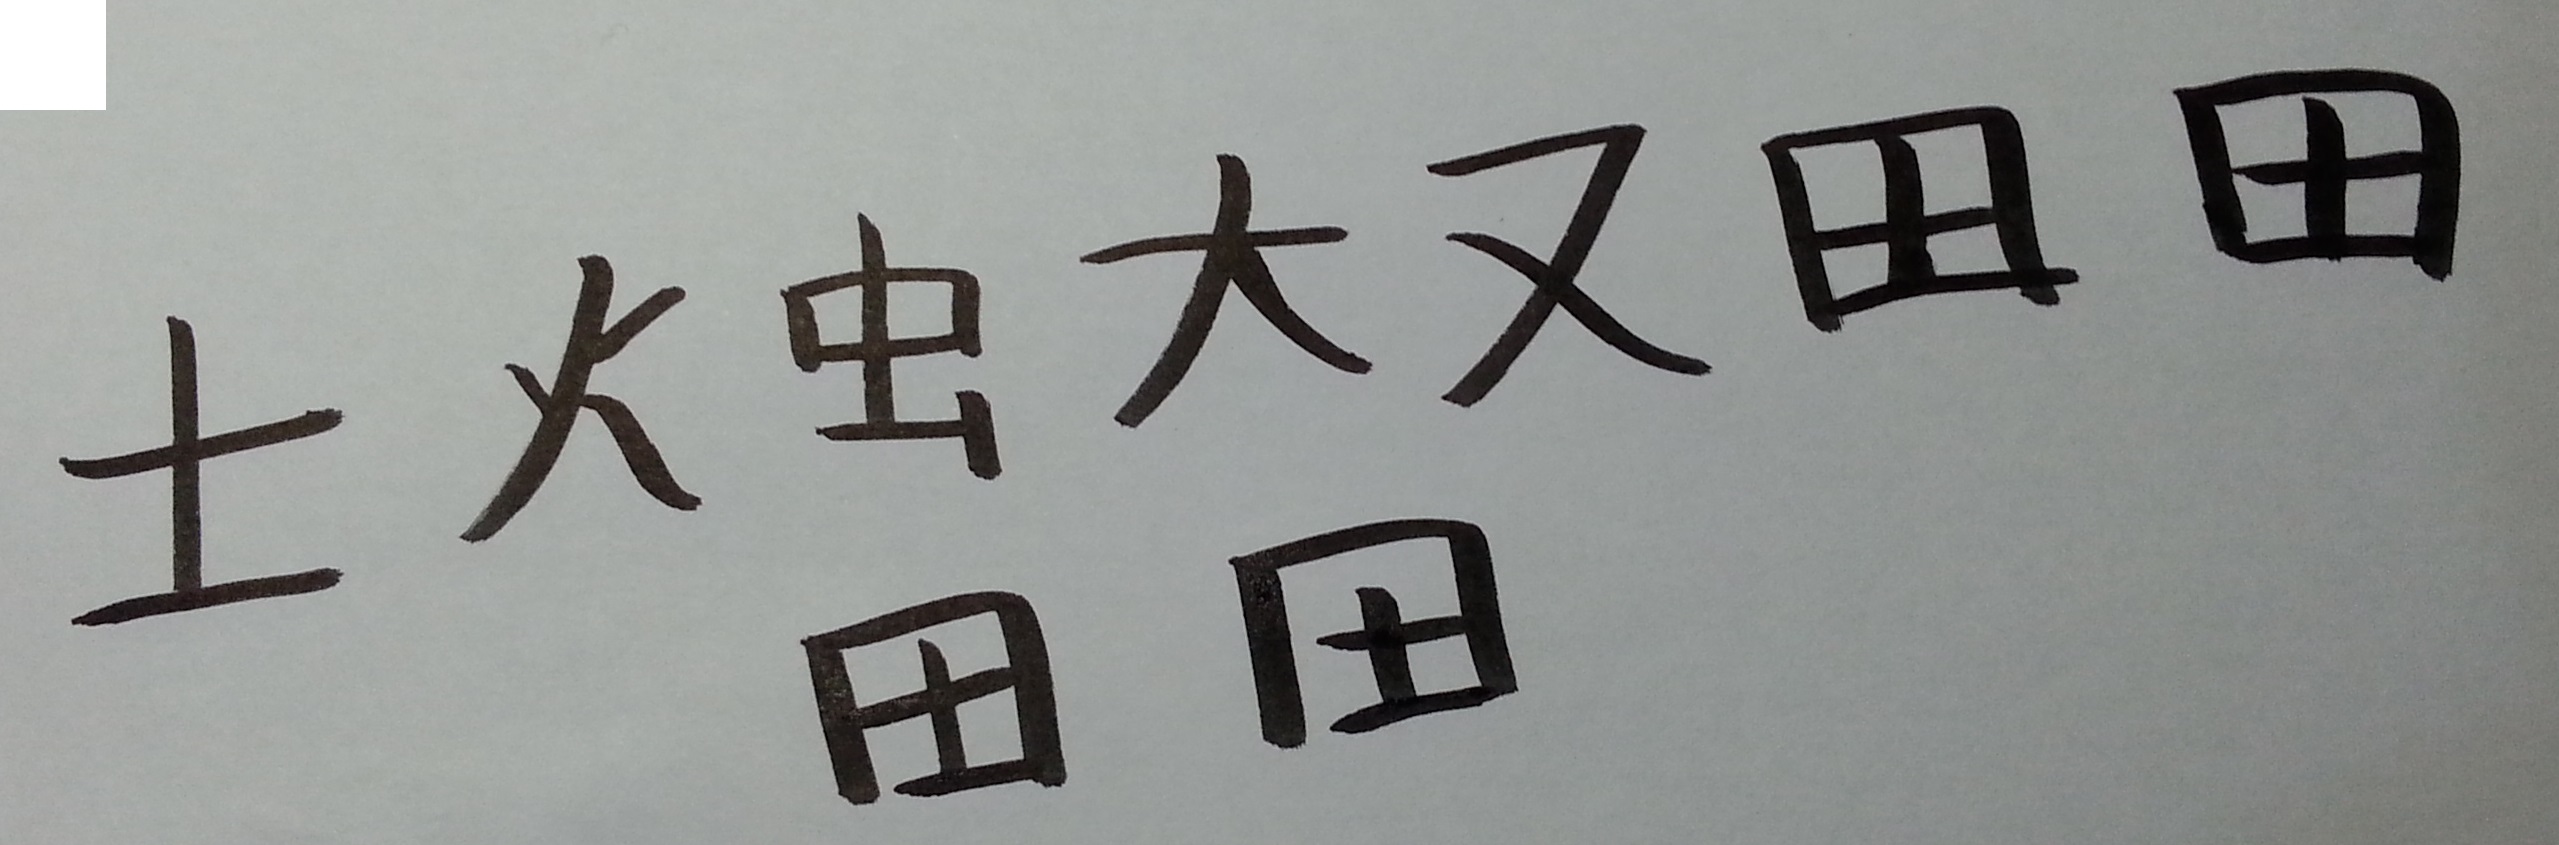 土火虫大又田田
田田